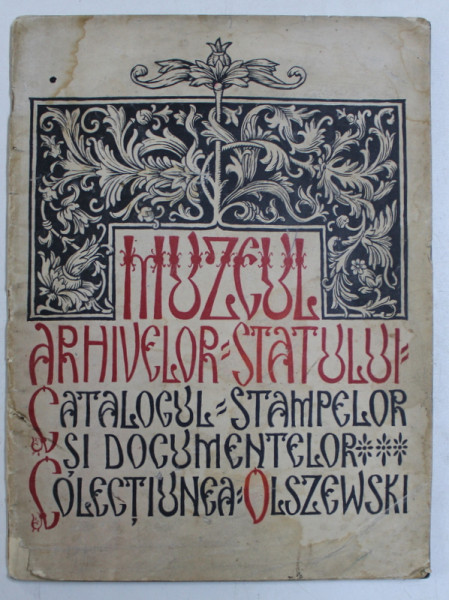 MUZEUL
ARHIVELOR=STATULUI=
CATALOGUL=STAMPELOR
ȘI DOCUMENTELOR
COLECȚIUNEA=OLSZEWSKI